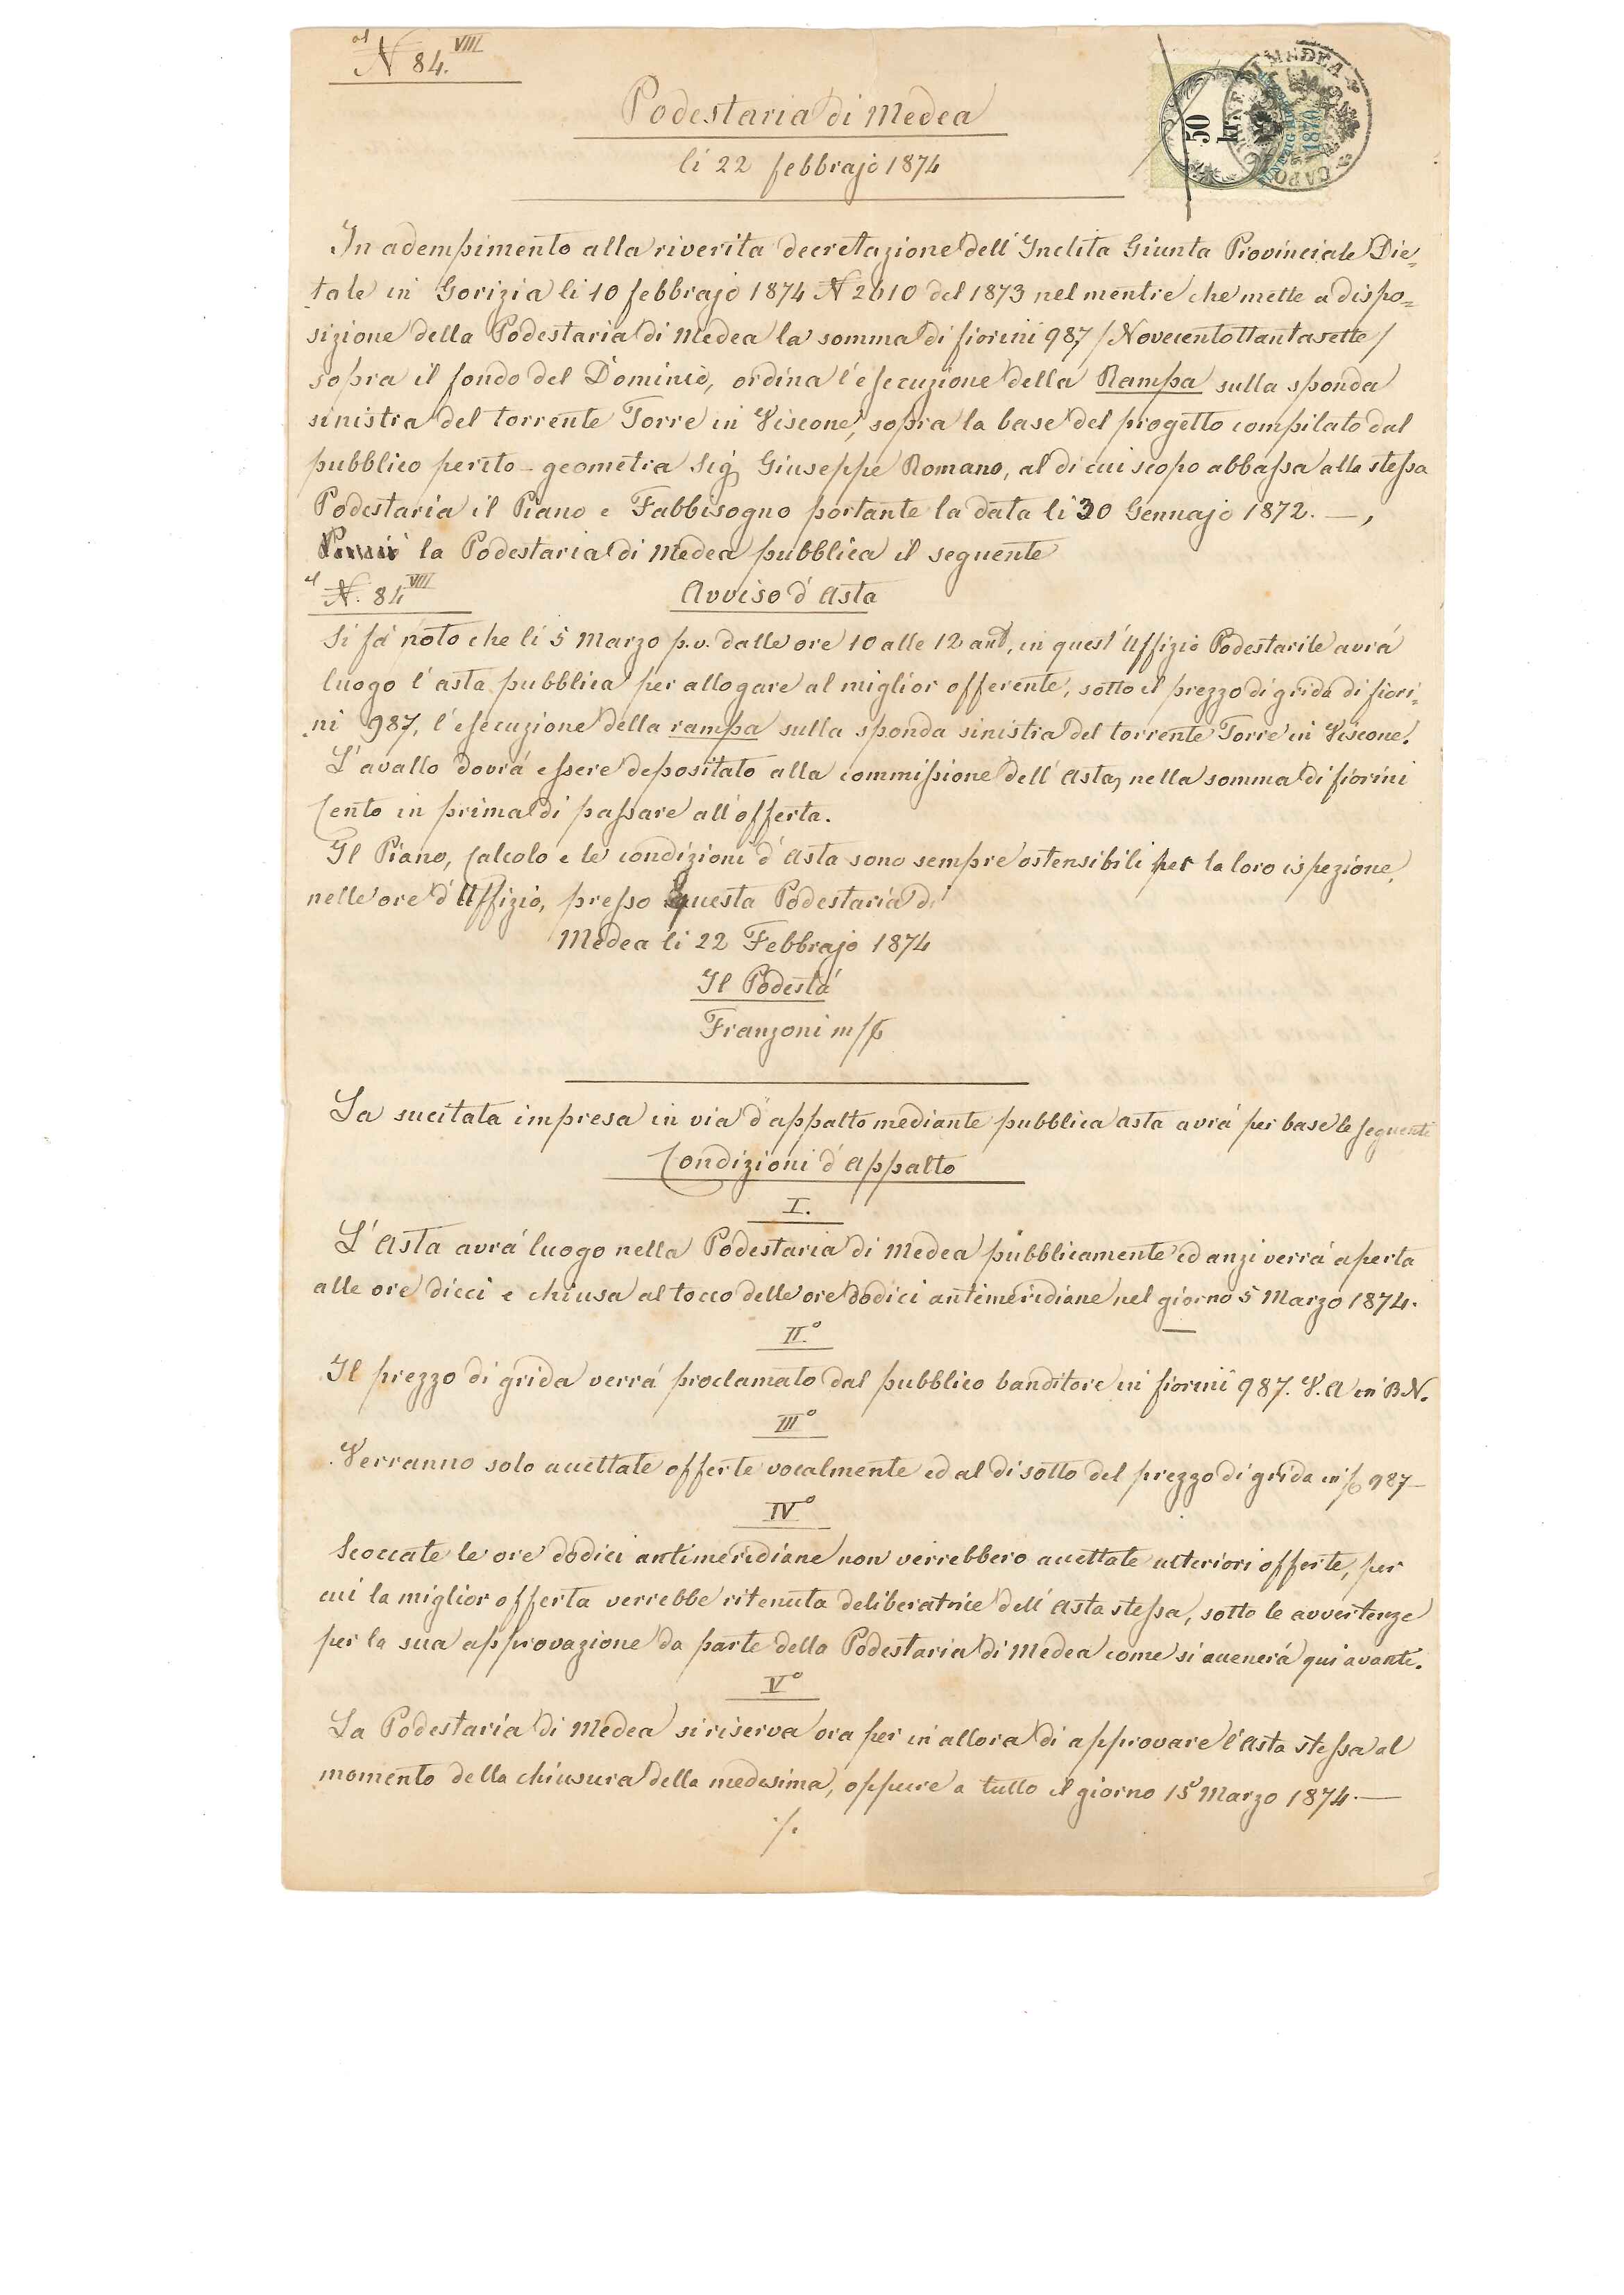 al
N 84. VIII
Podestaria di Medea
li 22 febbrajo 1874
50 kr
1870
In adempimento alla riverita decretazione dell' Inclita Giunta Provinciale Die=
tale in Gorizia li 10 febbrajo 1874 N 2610 del 1873 nel mentre che mette a dispo=
sizione della Podestaria di Medea la somma di fiorini 987 / Novecentottantasette /
sopra il fondo del Dominio, ordina l'esecuzione della Rampa sulla sponda
sinistra del torrente Torre in Viscone, sopra la base del progetto compilato dal
pubblico perito-geometra Sig. Giuseppe Romano, al di cui scopo abbassa alla stessa
Podestaria il Piano e Fabbisogno portante la data li 30 Gennajo 1872. —,
la Podestaria di Medea pubblica il seguente
al
N. 84 VIII Avviso d'Asta
Si fà noto che li 5 Marzo p.v. dalle ore 10 alle 12 ant, in quest'Uffizio Podestarile avrá
luogo l'asta pubblica per allogare al miglior offerente, sotto il prezzo di grida di fiori=
ni 987, l'esecuzione della rampa sulla sponda sinistra del torrente Torre in Viscone.
L'avallo dovrá essere depositato alla commissione dell'Asta, nella somma di fiorini
Cento in prima di passare all'offerta.
Il Piano, Calcolo e le condizioni d'Asta sono sempre ostensibili per la loro ispezione,
nelle ore d'Uffizio, presso questa Podestaria di
Medea li 22 Febbrajo 1874
Il Podestá
Franzoni m/p
La sucitata impresa in via d'appalto mediante pubblica asta avrá per base le seguenti
Condizioni d'Appalto
I.
L'Asta avrá luogo nella Podestaria di Medea pubblicamente ed anzi verrá aperta
alle ore dieci e chiusa al tocco delle ore dodici antimeridiane nel giorno 5 Marzo 1874.
II.°
Il prezzo di grida verrá proclamato dal pubblico banditore in fiorini 987. V.A in BN.
III°
Verranno solo accettate offerte vocalmente ed al di sotto del prezzo di grida in f 987—
IV°
Scoccate le ore dodici antimeridiane non verrebbero accettate ulteriori offerte, per
cui la miglior offerta verrebbe ritenuta deliberatrice dell'Asta stessa, sotto le avvertenze
per la sua approvazione da parte della Podestaria di Medea come si accenerá qui avanti.
V°
La Podestaria di Medea si riserva ora per in allora di approvare l'Asta stessa al
momento della chiusura della medesima, oppure a tutto il giorno 15 Marzo 1874.—
./.